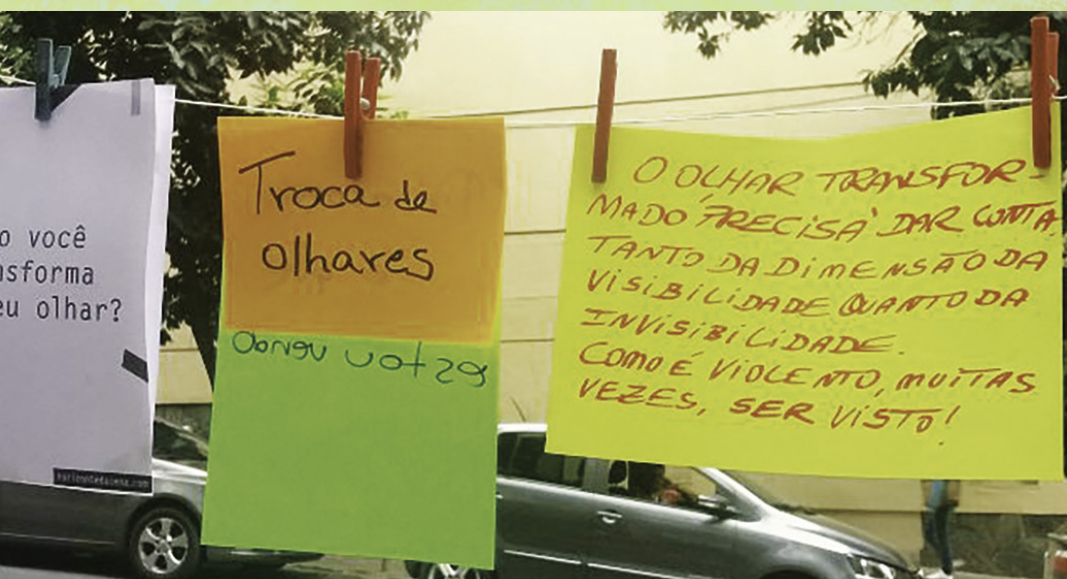 o você
nsforma
eu olhar?
Troca de
olhares
O OLHAR TRANSFOR-
MADO "PRECISA" DAR CONTA
TANTO DA DIMENSÃO DA
VISIBILIDADE QUANTO DA
INVISIBILIDADE.
COMO É VIOLENTO, MUITAS
VEZES, SER VISTO!